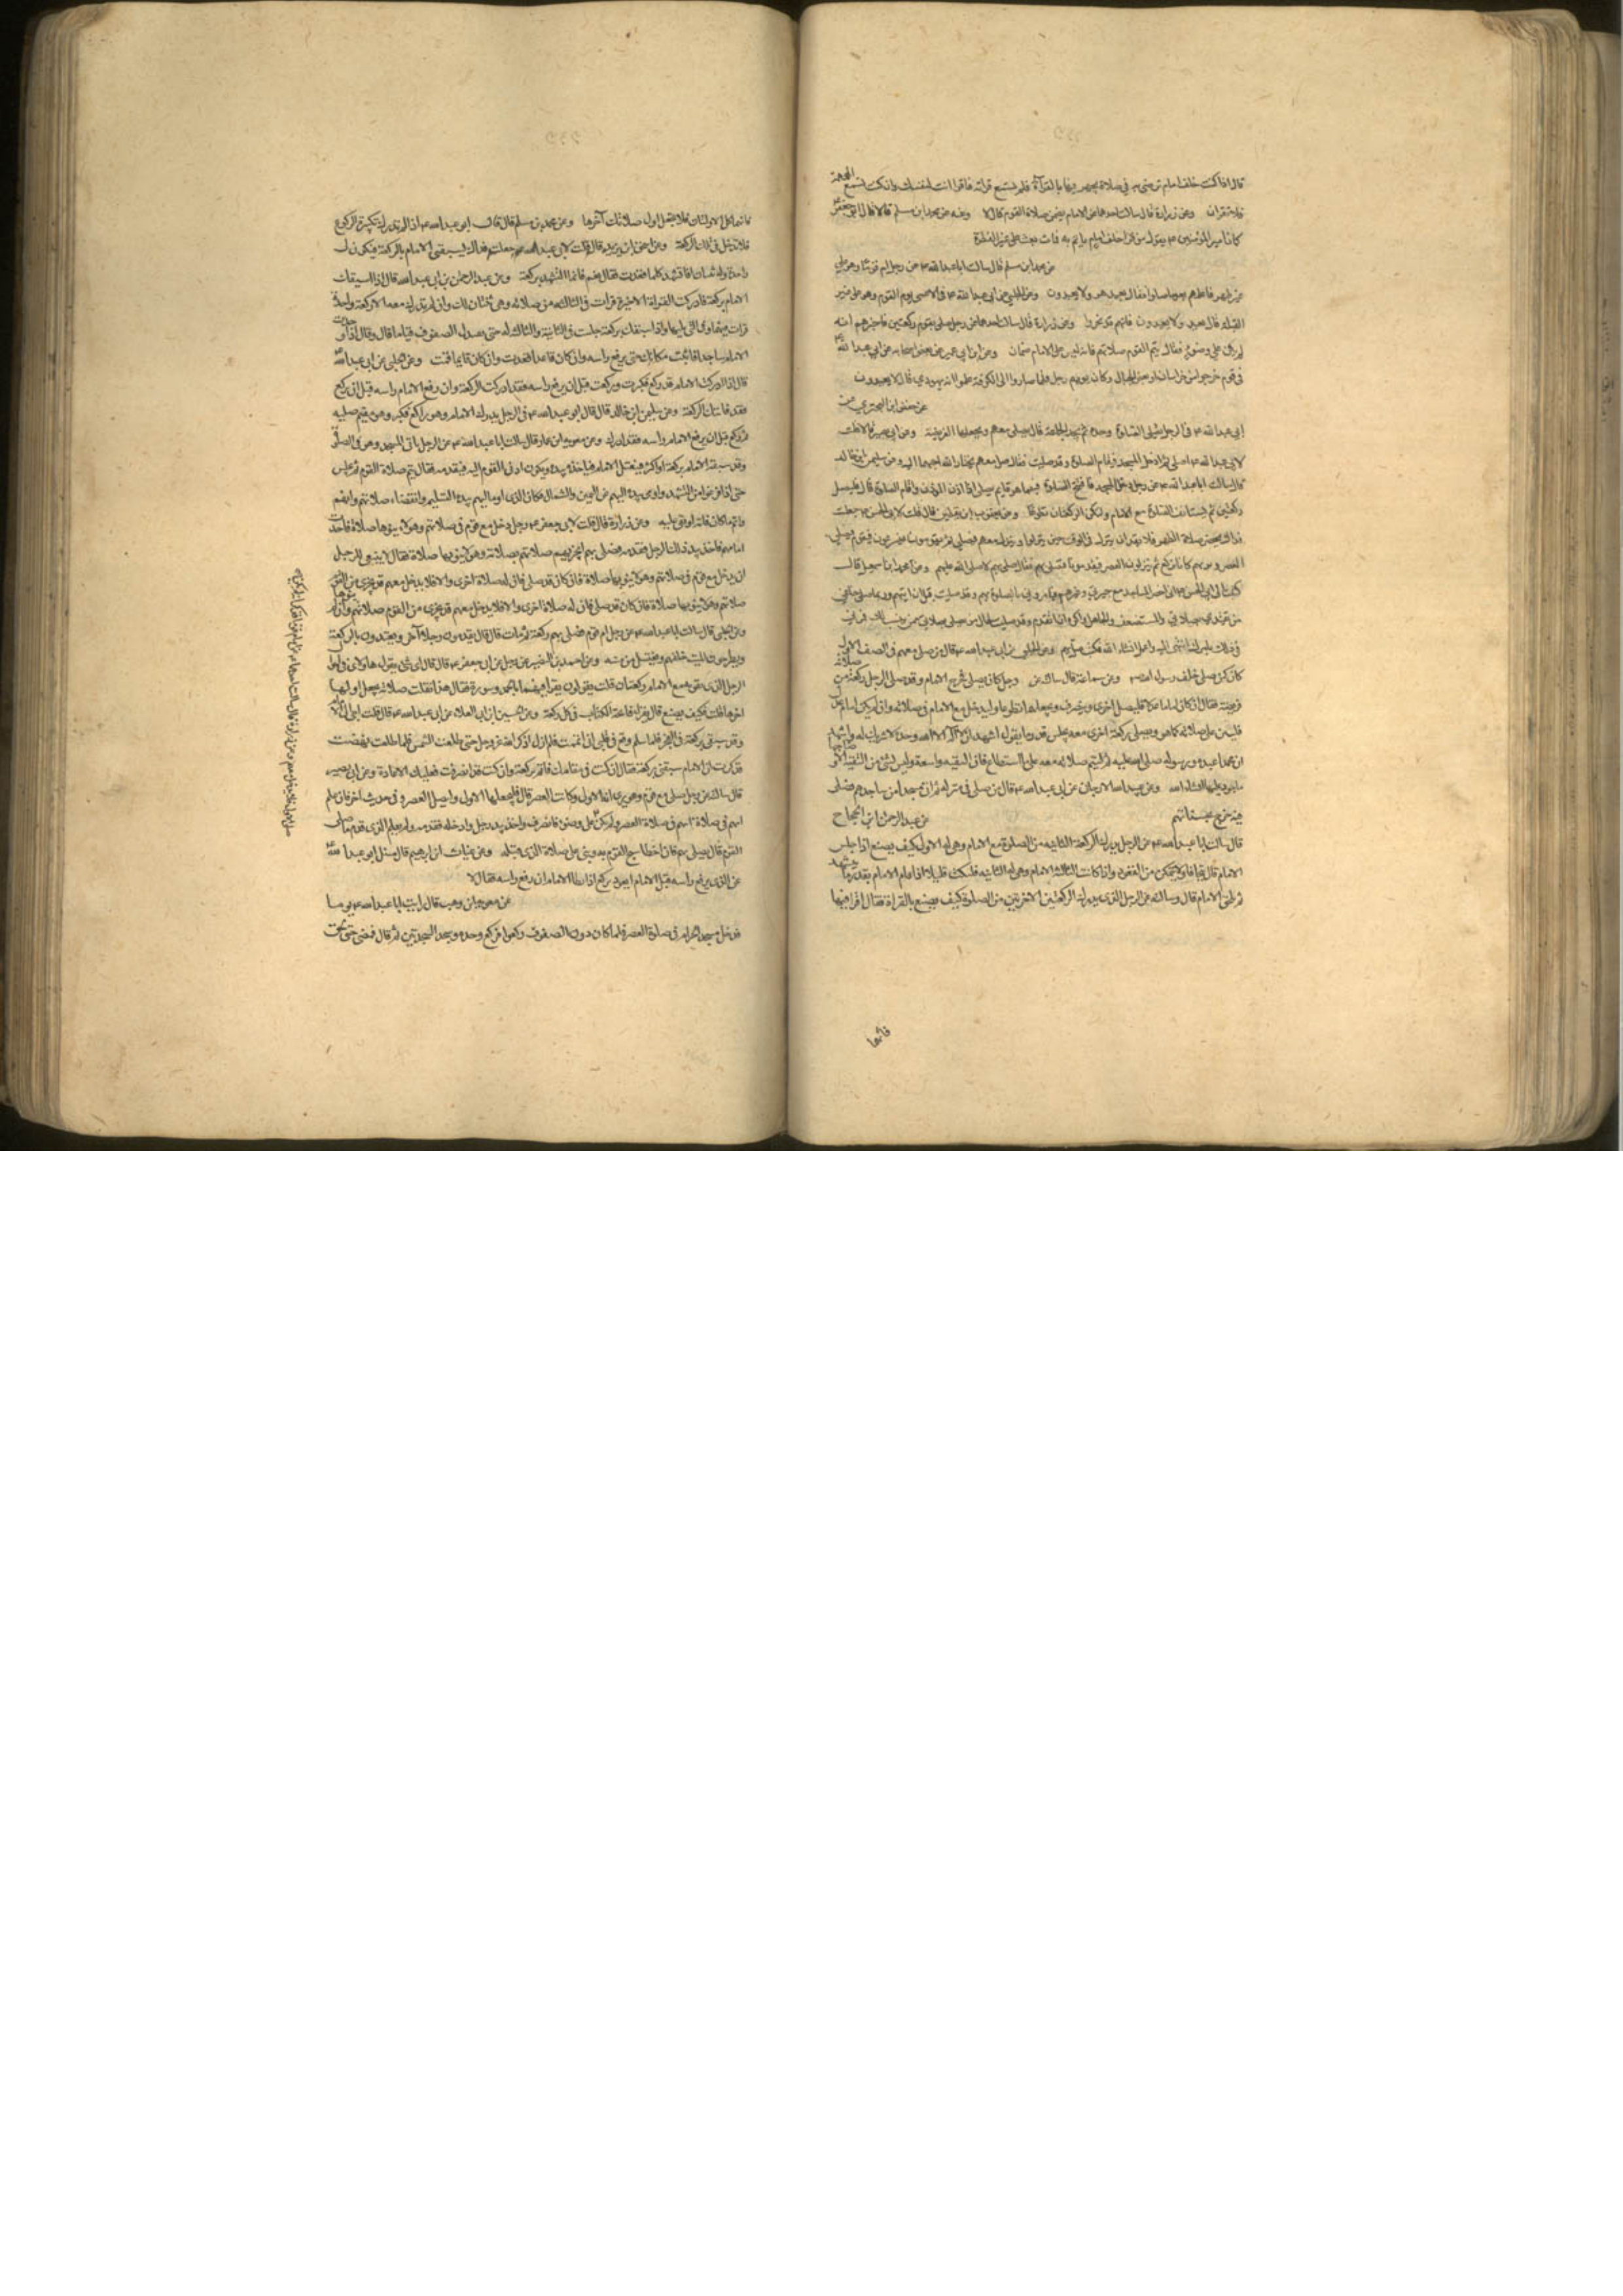 قال اذا كنت خلف امام ترضى به في صلاة يجهر فيها بالقرآة فلم تسمع قراته فاقرا انت لنفسك وان كنت تسمع الهمهمة
فلا تقرا وعن زرارة قال سالت احدهما عن الامام يضمن صلاة القوم قال لا وعنه عن محمد ابن مسلم قالا قال ابو جعفر
كان امير المؤمنين يقول من قرا خلف امام ياتم به فمات بعث على غير الفطرة
عن محمد ابن مسلم قال سالت ابا عبد الله عن رجل ام قوما وهو على
غير طهر فاعلمهم بعد ما صلوا فقال يعيد هو ولا يعيدون وعن الحلبي عن ابي عبد الله في الاعمى يوم القوم وهو على غير
القبلة قال يعيد ولا يعيدون فانهم قد تحروا وعن زرارة قال سالت احدهما عن رجل صلى بقوم ركعتين فاخبرهم انه
لم يكن على وضوء فقال يتم القوم صلاتهم فانه ليس على الامام ضمان وعن ابن ابي عمير عن بعض اصحابه عن ابي عبد الله
في قوم خرجوا من خراسان او بعض الجبال وكان يومهم رجل فلما صاروا الى الكوفة علموا انه يهودي قال لا يعيدون
عن حفص ابن البختري عن
ابي عبد الله في الرجل يصلي الصلوة وحده ثم يجد الجماعة قال يصلي معهم ويجعلها الفريضة وعن ابي بصير قال قلت
لابي عبد الله اصلي ثم ادخل المسجد فتقام الصلوة وقد صليت فقال صل معهم يختار الله احبهما اليه وعن سليمن ابن خالد
قال سالت ابا عبد الله عن رجل دخل المسجد فافتتح الصلوة فبينما هو قايم يصلي اذا اذن المؤذن واقام الصلوة قال فليصل
ركعتين ثم ليستانف الصلوة مع الامام ولتكن الركعتان تطوعا وعن يعقوب ابن يقطين قال قلت لابي الحسن جعلت
فداك تحضر صلاة الظهر فلا نقدر ان ننزل في الوقت حتى ينزلوا وننزل معهم فنصلي ثم يقومون فيسرعون فنقوم ونصلي
العصر ونريهم كانا نركع ثم ينزلون للعصر فيقدمونا فنصلي بهم فقال صل بهم لا صلى الله عليهم وعن محمد ابن اسمعيل قال
كتبت الى ابي الحسن اني احضر المساجد مع جيرتي وغيرهم فيامروني بالصلوة بهم وقد صليت قبل ان اتيهم وربما صلى خلفي
من يقتدي بصلاتي والمستضعف والجاهل واكره ان اتقدم وقد صليت لحال من يصلي بصلاتي ممن سميت لك فمرني
في ذلك بامرك انتهي اليه واعمل به انشاء الله فكتب صل بهم وعن الحلبي عن ابي عبد الله قال من صلى معهم في الصف الاول
كان كمن صلى خلف رسول الله وعن سماعة قال سالته عن رجل كان يصلي فخرج الامام وقد صلى الرجل ركعة من صلاة
فريضة فقال ان كان اماما عدلا فليصل اخرى وينصرف ويجعلها تطوعا وليدخل مع الامام في صلاته وان لم يكن امام عدل
فليبن على صلاته كما هو ويصلي ركعة اخرى معه يجلس قدر ما يقول اشهد ان لا اله الا الله وحده لا شريك له واشهد
ان محمدا عبده ورسوله صلى الله عليه ثم ليتم صلاته معه على ما استطاع فان التقية واسعة وليس شئ من التقية الا و صاحبها
ماجور عليها انشاء الله وعن عبيد الله الارجان عن ابي عبد الله قال من صلى في منزله ثم اتى مسجدا من مساجدهم فصلى
فيه خرج بحسناتهم عن عبد الرحمن ابن الحجاج
قال سالت ابا عبد الله عن الرجل يدرك الركعة الثانية من الصلوة مع الامام وهي له الاولى كيف يصنع اذا جلس
الامام قال يتجافى ولا يتمكن من القعود واذا كانت الثالثة للامام وهي له الثانية فليلبث قليلا اذا قام الامام بقدر ما يتشهد
ثم يلحق الامام قال وسالته عن الرجل الذي يدرك الركعتين الاخيرتين من الصلوة كيف يصنع بالقراة فقال اقرا فيهما
فانهما
فانهما لك الاولتان فلا تجعل اول صلاتك آخرها وعن محمد بن مسلم قال قال ابو عبد الله اذا لم تدرك تكبيرة الركوع
فلا تدخل في تلك الركعة وعن اسحق ابن يزيد قال قلت لابي عبد الله جعلت فداك يسبقني الامام بالركعة فتكون لي
واحدة وله ثنتان افاتشهد كلما قعدت فقال نعم فانما التشهد بركة وعن عبد الرحمن بن ابي عبد الله قال اذا سبقك
الامام بركعة فادركت القراة الاخيرة قرات في الثالثة من صلاته وهي ثنتان لك وان لم تدرك معه الا ركعة واحدة
قرات فيها وفي التي تليها واذا سبقك بركعة جلست في الثانية والثالثة له حتى يعتدل الصفوف قياما قال وقال اذا وجدت
الامام ساجدا فاثبت مكانك حتى يرفع راسه وان كان قاعدا قعدت وان كان قايما قمت وعن الحلبي عن ابي عبد الله
قال اذا ادركت الامام قد ركع فكبرت وركعت قبل ان يرفع راسه فقد ادركت الركعة وان رفع الامام راسه قبل ان تركع
فقد فاتتك الركعة وعن سليمن ابن خالد قال قال ابو عبد الله في الرجل يدرك الامام وهو راكع فكبر وهو مقيم صلبه
ثم ركع قبل ان يرفع الامام راسه فقد ادرك وعن معوية ابن عمار قال سالت ابا عبد الله عن الرجل ياتي المسجد وهم في الصلوة
وقد سبقه الامام بركعة او اكثر فيعتل الامام فياخذ بيده ويكون ادنى القوم اليه فيقدمه فقال يتم صلاة القوم ثم يجلس
حتى اذا فرغوا من التشهد واومى بيده اليهم عن اليمين والشمال فكان الذي اوما اليهم بيده التسليم وانقضاء صلاتهم واتم
هو ما كان فاته او بقي عليه وعن زرارة قال قلت لابي جعفر رجل دخل مع قوم في صلاتهم وهو لا ينويها صلاة فاحدث
امامهم فاخذ بيد ذلك الرجل فقدمه فصلى بهم ايجزيهم صلاتهم بصلاته وهو لا ينويها صلاة فقال لا ينبغي للرجل
ان يدخل مع قوم في صلاتهم وهو لا ينويها صلاة فان كان قد صلى فان له صلاة اخرى والا فلا يدخل معهم قد تجزي عن القوم
صلاتهم وان لم ينوها
وعن الحلبي قال سالت ابا عبد الله عن رجل ام قوم فصلى بهم ركعة ثم مات قال قال يقدمون رجلا آخر ويعتدون بالركعة
ويطرحون الميت خلفهم ويغتسل من مسه وعن احمد بن النضير عن رجل عن ابي جعفر قال قال لي اي شئ يقول هؤلاء في
الرجل الذي تفوته مع الامام ركعتان قلت يقولون يقرا فيهما بالحمد وسورة فقال هذا تقلب صلاته يجعل اولها
اخرها قلت فكيف يصنع قال يقرا بفاتحة الكتاب في كل ركعة وعن الحسين ابن ابي العلاء عن ابي عبد الله قال قلت
وقد سبقني بركعة في الفجر فلما سلم وقع في قلبي اني اتممت فلم ازل اذكر الله عز وجل حتى طلعت الشمس فلما طلعت نهضت
فذكرت ان الامام سبقني بركعة فقال ان كنت في مقامك فاتم بركعة وان كنت قد انصرفت فعليك الاعادة وعن ابي بصير
قال سالته عن رجل صلى مع قوم وهو يرى انها الاولى وكانت العصر قال فليجعلها الاولى وليصل العصر وفي حديث اخر فان علم
انهم في صلاة العصر ولم يكن على وضوء فانصرف واخذ بيد رجل وادخله فقدمه ولم يعلم الذي قدم ما صلى
القوم قال يصلي بهم فان اخطا سبح القوم به وبنى على صلاة الذي قبله وعن غياث ابن ابرهيم قال سئل ابو عبد الله
عن الذي يرفع راسه قبل الامام ايعود يركع اذا ابطا الامام ان رفع راسه فقال لا
عن معوية ابن وهب قال رايت ابا عبد الله يوما
دخل مسجد الحرام في صلوة العصر فلما كان دون الصفوف ركعوا فركع وحده وسجد السجدتين ثم قال فمضى حتى لحق